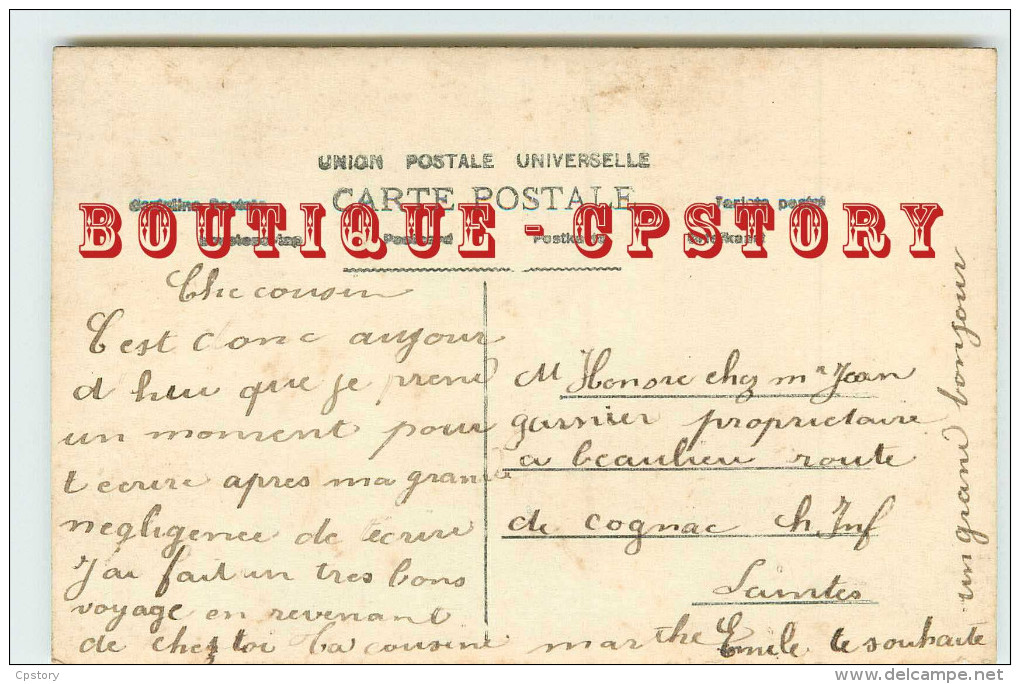 UNION POSTALE UNIVERSELLE
CARTE POSTALE
Tarjeta postal
BOUTIQUE - CPSTORY
Postcard Postkarte Briefkaart
Cher cousin
C'est donc aujour
d hui que je prend
un moment pour
t ecrire apres ma grande
negligence de ecrire
J'ai fait un tres bons
voyage en revenant
de chez toi ta cousine marthe Emile te souhaite
un grand bonjour
M Honore chez mr Jean
garnier proprietaire
a beaulieu route
de cognac ch. Inf
Saintes
Copyright: Cpstory
www.delcampe.net